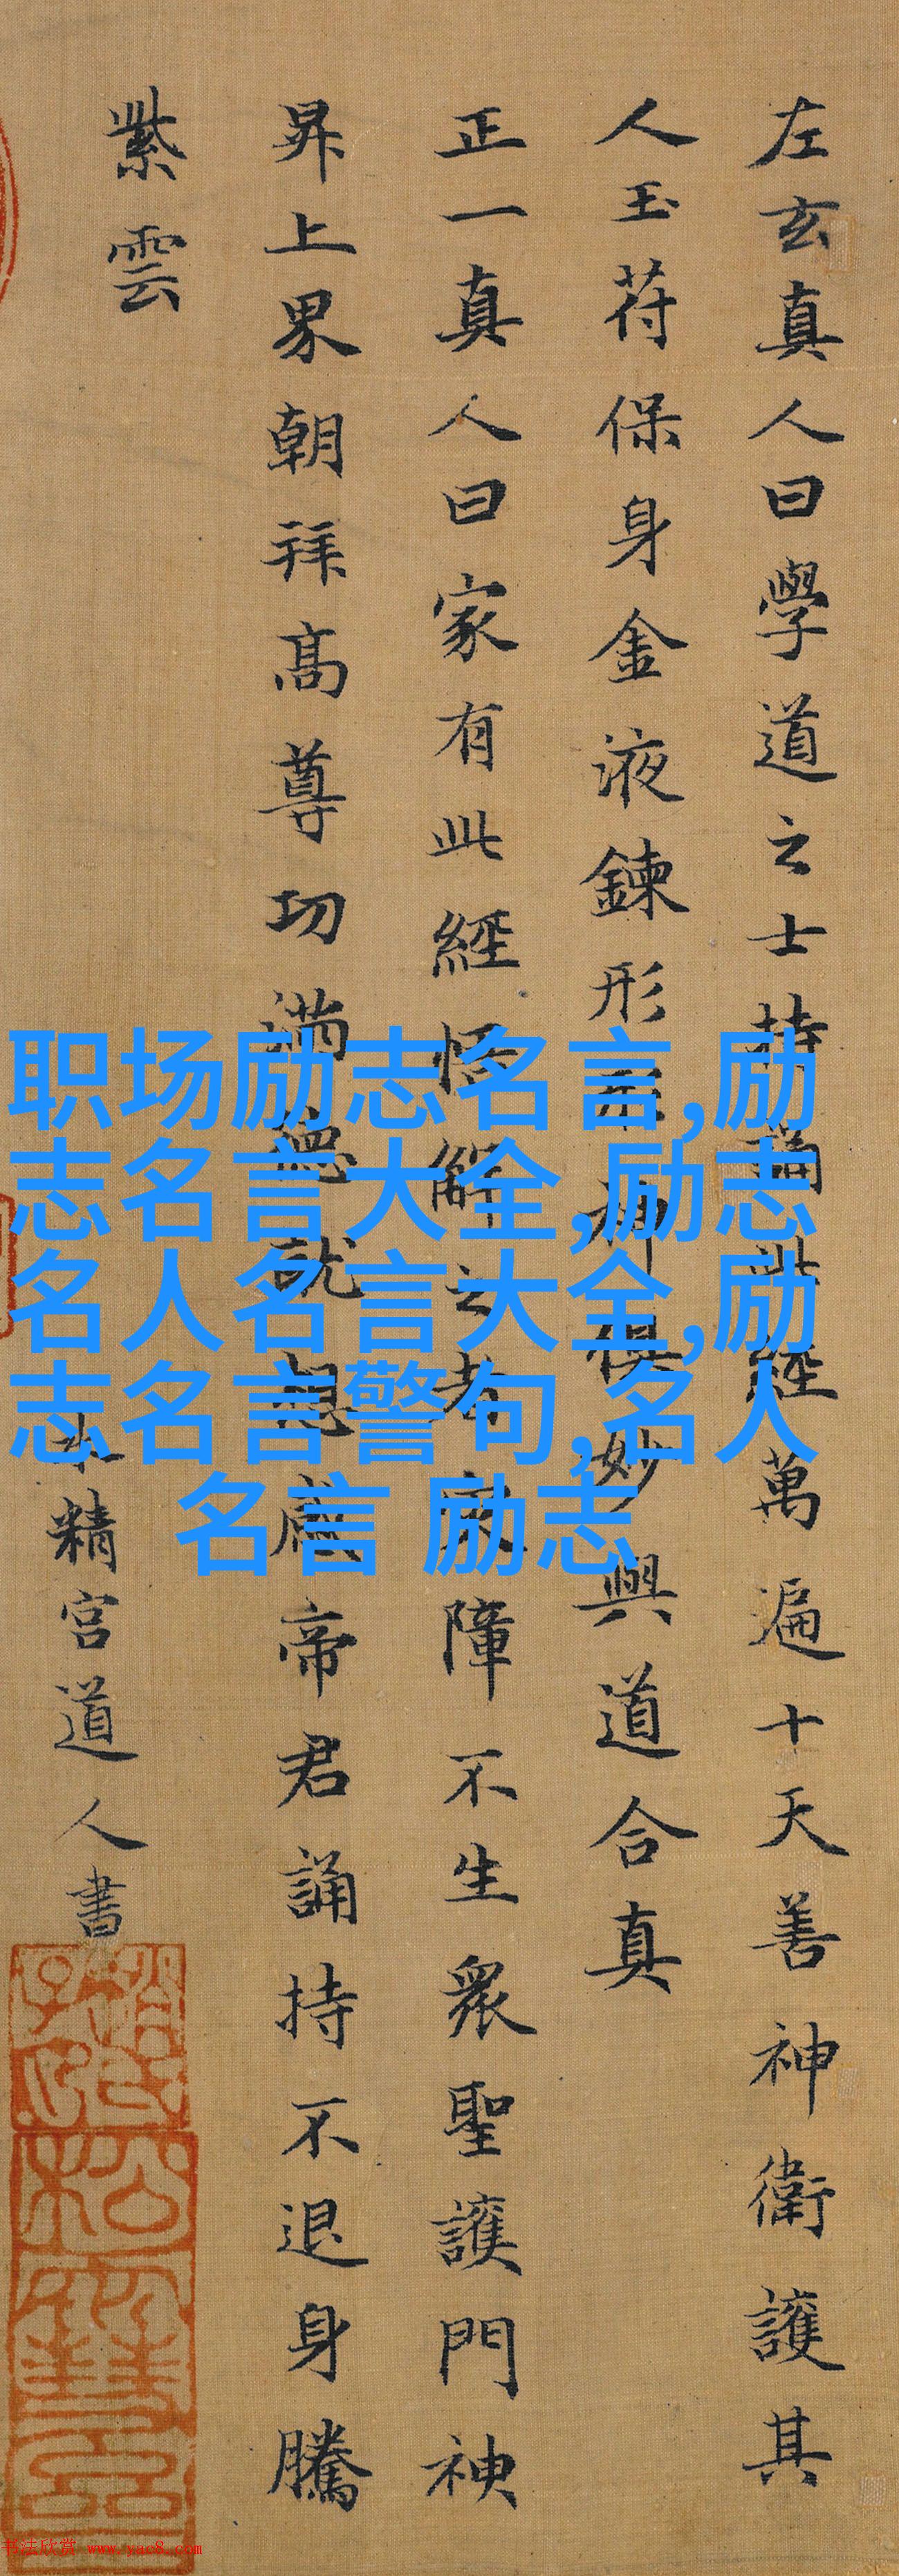 左玄真人曰學道之士持誦此經萬遍十天善神衛護其
人玉符保身金液鍊形形神俱妙與道合真
正一真人曰家有此經悟解之者灾障不生衆聖護門神
昇上界朝拜高尊功滿德就想感帝君誦持不退身騰
紫雲
水精宮道人書
职场励志名言,励
志名言大全,励志
名人名言大全,励
志名言警句,名人
名言 励志
书法欣赏 www.yac8.com